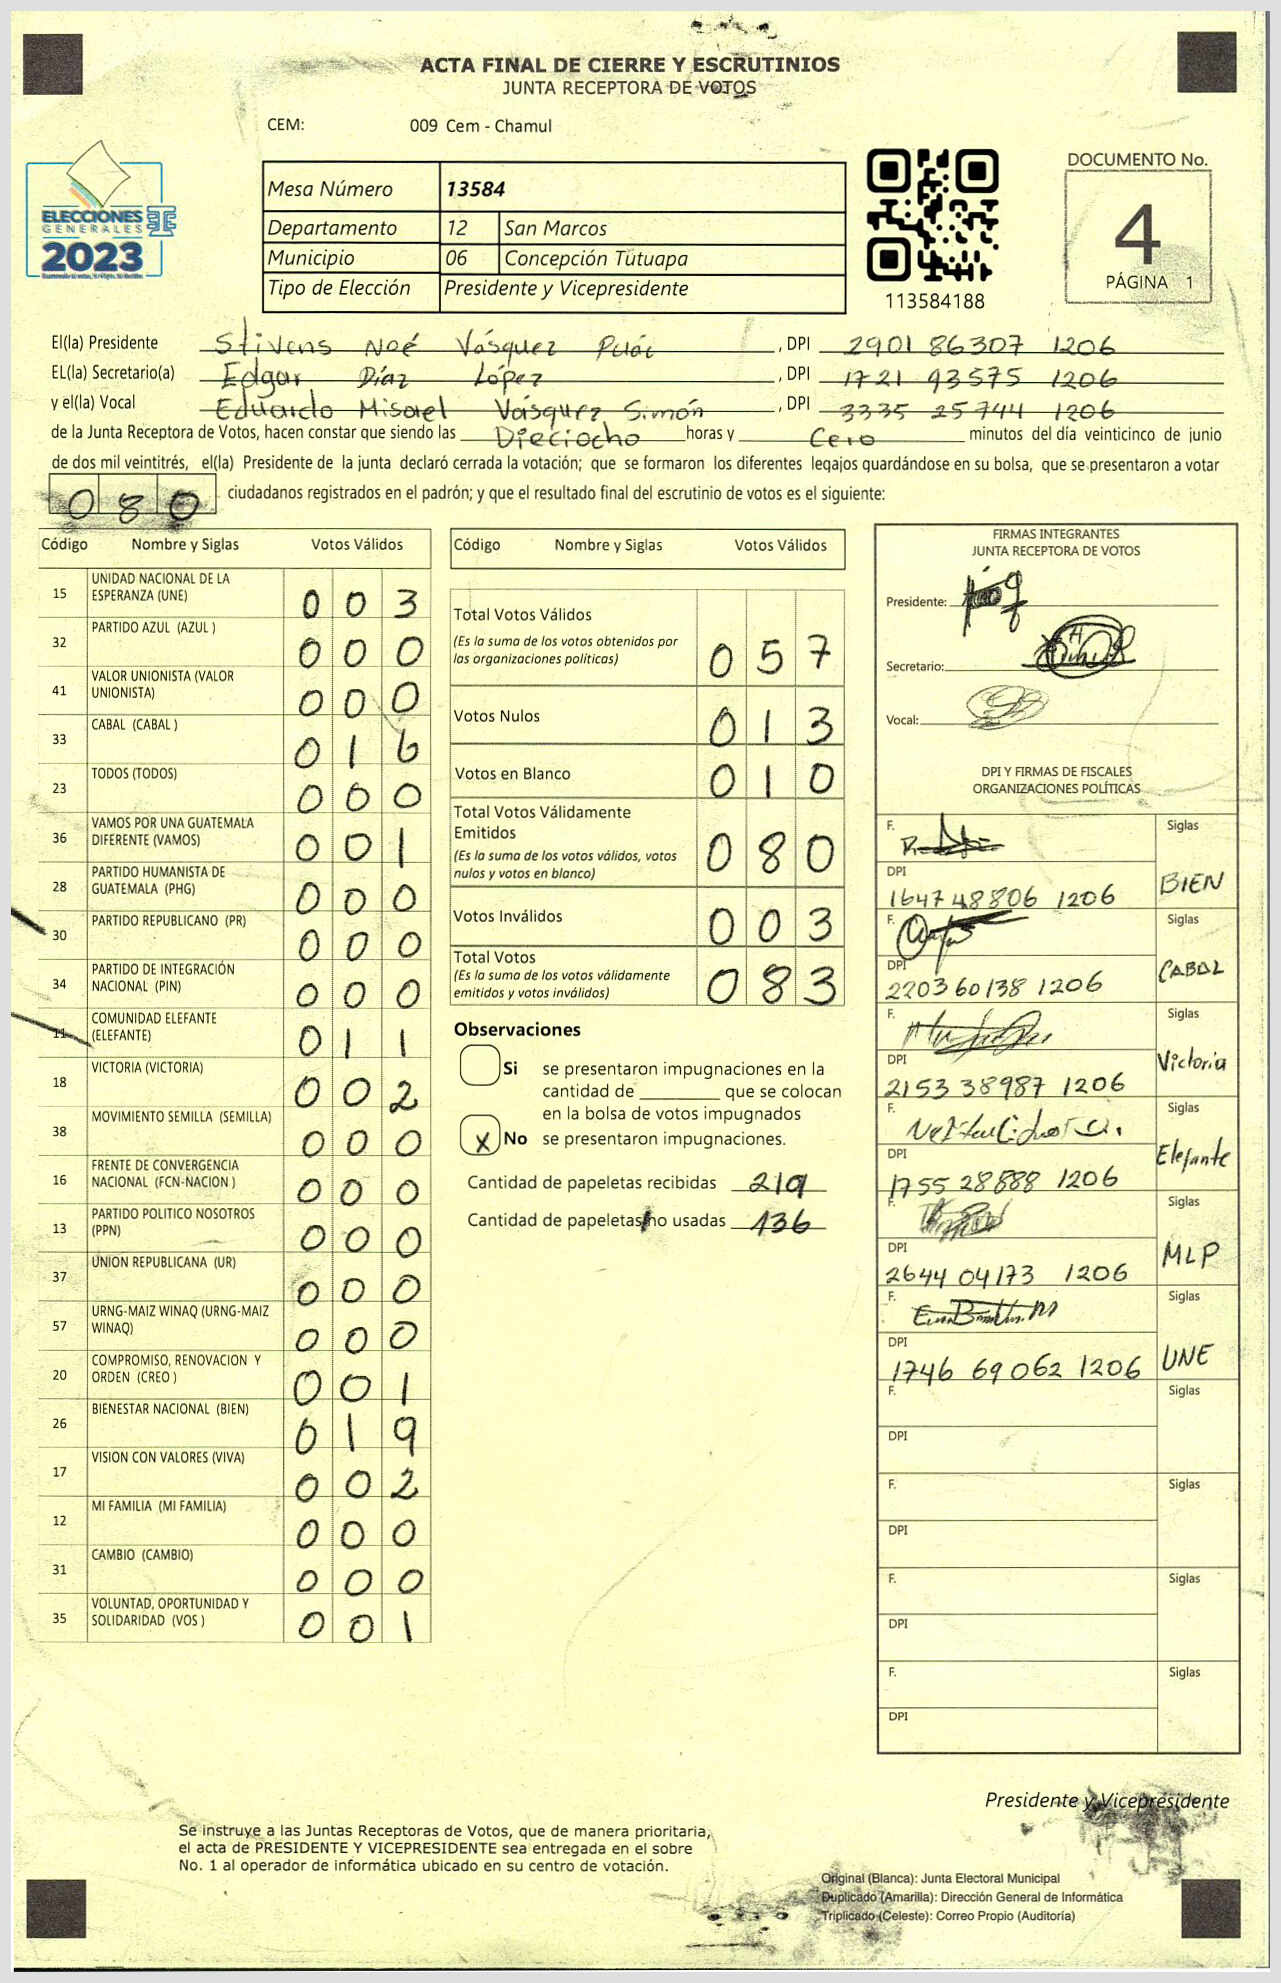 ACTA FINAL DE CIERRE Y ESCRUTINIOS
JUNTA RECEPTORA DE VOTOS
CEM: 009 Cem - Chamul
ELECCIONES
GENERALES
2023
Mesa Número 13584
Departamento 12 San Marcos
Municipio 06 Concepción Tutuapa
Tipo de Elección Presidente y Vicepresidente
113584188
DOCUMENTO No.
4
PÁGINA 1
El(la) Presidente Stivens Noé Vásquez , DPI 2901 86307 1206
EL(la) Secretario(a) Edgar Díaz López , DPI 1721 93575 1206
y el(la) Vocal Eduardo Misael Vásquez Simón , DPI 3335 25744 1206
de la Junta Receptora de Votos, hacen constar que siendo las Dieciocho horas y Cero minutos del día veinticinco de junio
de dos mil veintitrés, el(la) Presidente de la junta declaró cerrada la votación; que se formaron los diferentes legajos guardándose en su bolsa, que se presentaron a votar
080 ciudadanos registrados en el padrón; y que el resultado final del escrutinio de votos es el siguiente:
Código Nombre y Siglas Votos Válidos
15 UNIDAD NACIONAL DE LA
ESPERANZA (UNE) 003
32 PARTIDO AZUL (AZUL ) 000
41 VALOR UNIONISTA (VALOR
UNIONISTA) 000
33 CABAL (CABAL ) 016
23 TODOS (TODOS) 000
36 VAMOS POR UNA GUATEMALA
DIFERENTE (VAMOS) 001
28 PARTIDO HUMANISTA DE
GUATEMALA (PHG) 000
30 PARTIDO REPUBLICANO (PR) 000
34 PARTIDO DE INTEGRACIÓN
NACIONAL (PIN) 000
11 COMUNIDAD ELEFANTE
(ELEFANTE) 011
18 VICTORIA (VICTORIA) 002
38 MOVIMIENTO SEMILLA (SEMILLA) 000
16 FRENTE DE CONVERGENCIA
NACIONAL (FCN-NACION ) 000
13 PARTIDO POLITICO NOSOTROS
(PPN) 000
37 UNION REPUBLICANA (UR) 000
57 URNG-MAIZ WINAQ (URNG-MAIZ
WINAQ) 000
20 COMPROMISO, RENOVACION Y
ORDEN (CREO ) 001
26 BIENESTAR NACIONAL (BIEN) 019
17 VISION CON VALORES (VIVA) 002
12 MI FAMILIA (MI FAMILIA) 000
31 CAMBIO (CAMBIO) 000
35 VOLUNTAD, OPORTUNIDAD Y
SOLIDARIDAD (VOS ) 001
Código Nombre y Siglas Votos Válidos
Total Votos Válidos
(Es la suma de los votos obtenidos por
las organizaciones políticas) 057
Votos Nulos 013
Votos en Blanco 010
Total Votos Válidamente
Emitidos
(Es la suma de los votos válidos, votos
nulos y votos en blanco) 080
Votos Inválidos 003
Total Votos
(Es la suma de los votos válidamente
emitidos y votos inválidos) 083
Observaciones
Si se presentaron impugnaciones en la
cantidad de ________ que se colocan
en la bolsa de votos impugnados
X No se presentaron impugnaciones.
Cantidad de papeletas recibidas 219
Cantidad de papeletas no usadas 136
FIRMAS INTEGRANTES
JUNTA RECEPTORA DE VOTOS
Presidente:
Secretario:
Vocal:
DPI Y FIRMAS DE FISCALES
ORGANIZACIONES POLÍTICAS
F. Siglas
DPI BIEN
1647 48806 1206
F. Siglas
DPI CABAL
2203 60138 1206
F. Siglas
DPI Victoria
2153 38987 1206
F. Siglas
DPI Elefante
1755 28888 1206
F. Siglas
DPI MLP
2644 04173 1206
F. Siglas
DPI UNE
1746 69062 1206
F. Siglas
DPI
F. Siglas
DPI
F. Siglas
DPI
F. Siglas
DPI
Presidente y Vicepresidente
Se instruye a las Juntas Receptoras de Votos, que de manera prioritaria,
el acta de PRESIDENTE Y VICEPRESIDENTE sea entregada en el sobre
No. 1 al operador de informática ubicado en su centro de votación.
Original (Blanca): Junta Electoral Municipal
Duplicado (Amarilla): Dirección General de Informática
Triplicado (Celeste): Correo Propio (Auditoría)